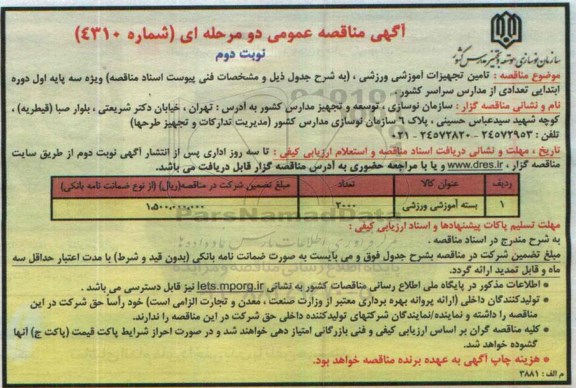 آگهی مناقصه عمومی دو مرحله ای (شماره ٤٣١٠)
نوبت دوم
سازمان نوسازی، توسعه و تجهیز مدارس کشور
موضوع مناقصه : تامین تجهیزات آموزشی ورزشی ، (به شرح جدول ذیل و مشخصات فنی پیوست اسناد مناقصه) ویژه سه پایه اول دوره
ابتدایی تعدادی از مدارس سراسر کشور.
نام و نشانی مناقصه گزار : سازمان نوسازی ، توسعه و تجهیز مدارس کشور به آدرس : تهران ، خیابان دکتر شریعتی ، بلوار صبا (قیطریه) ،
کوچه شهید سیدعباس حسینی ، پلاک ٦ سازمان نوسازی مدارس کشور (مدیریت تدارکات و تجهیز طرحها)
تلفن : ٢٤٥٧٢٩٥٣ - ٢٤٥٧٢٨٢٠ - ٠٢١
تاریخ ، مهلت و نشانی دریافت اسناد مناقصه و استعلام ارزیابی کیفی : تا سه روز اداری پس از انتشار آگهی نوبت دوم از طریق سایت
مناقصه گزار ، www.dres.ir و یا با مراجعه حضوری به آدرس مناقصه گزار قابل دریافت می باشد.
ردیف عنوان کالا تعداد مبلغ تضمین شرکت در مناقصه(ریال) (از نوع ضمانت نامه بانکی)
١ بسته آموزشی ورزشی ٢٠٠٠ ١،٥٠٠،٠٠٠،٠٠٠
مهلت تسلیم پاکات پیشنهادها و اسناد ارزیابی کیفی :
به شرح مندرج در اسناد مناقصه .
مبلغ تضمین شرکت در مناقصه بشرح جدول فوق و می بایست به صورت ضمانت نامه بانکی (بدون قید و شرط) با مدت اعتبار حداقل سه
ماه و قابل تمدید ارائه گردد.
• اطلاعات مذکور در پایگاه ملی اطلاع رسانی مناقصات کشور به نشانی iets.mporg.ir نیز قابل دسترسی می باشد .
• تولیدکنندگان داخلی (ارائه پروانه بهره برداری معتبر از وزارت صنعت ، معدن و تجارت الزامی است) خود رأساً حق شرکت در این
مناقصه را داشته و نماینده/نمایندگان شرکتهای تولیدکننده داخلی حق شرکت در این مناقصه را ندارند.
• کلیه مناقصه گران بر اساس ارزیابی کیفی و فنی بازرگانی امتیاز دهی خواهند شد و در صورت احراز شرایط پاکت قیمت (پاکت ج) آنها
گشوده خواهد شد.
• هزینه چاپ آگهی به عهده برنده مناقصه خواهد بود.
م الف : ٣٨٨١
ParsNamadData